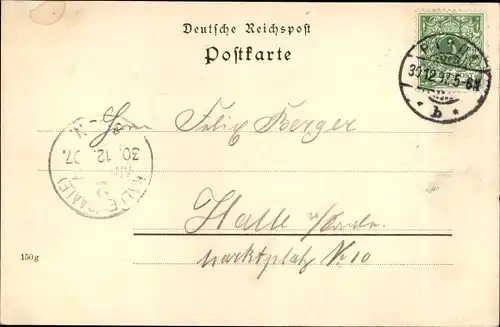 Deutsche Reichspost
Postkarte
30.12.97.5-6N
b
Herrn Felix Berger
30.12.97.
HALLE (SAALE)
Halle a/Saale
Marktplatz No 10
150g